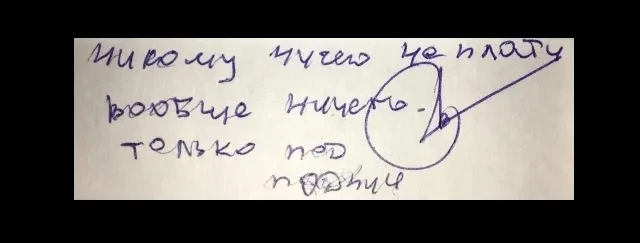 никому ничего не плати
вообще ничего.
только под
подпись